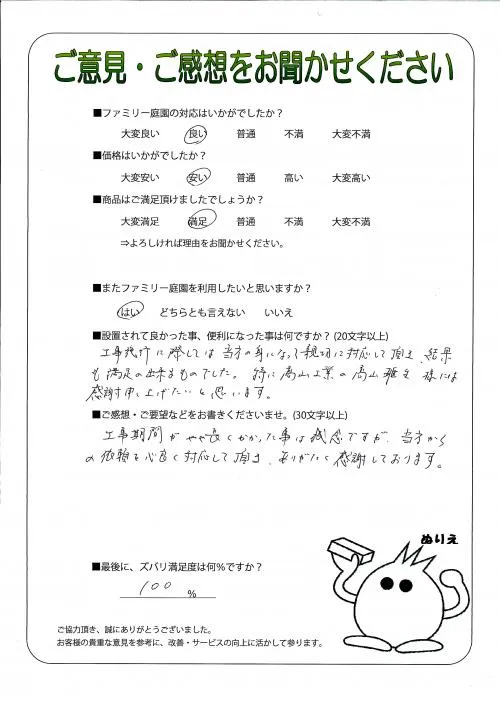 ご意見・ご感想をお聞かせください
■ファミリー庭園の対応はいかがでしたか？
大変良い 良い 普通 不満 大変不満
■価格はいかがでしたか？
大変安い 安い 普通 高い 大変高い
■商品はご満足頂けましたでしょうか？
大変満足 満足 普通 不満 大変不満
⇒よろしければ理由をお聞かせください。
■またファミリー庭園を利用したいと思いますか？
はい どちらとも言えない いいえ
■設置されて良かった事、便利になった事は何ですか？(20文字以上)
工事 に際しては当方の身になって親切に対応して頂き、結果
も満足の出来るものでした。特に高山工業の高山 様には
感謝申し上げたいと思います。
■ご感想・ご要望などをお書きくださいませ。(30文字以上)
工事期間がやや長くかかった事は残念ですが、当方から
の依頼を心良く対応して頂き、ありがたく感謝しております。
ぬりえ
■最後に、ズバリ満足度は何%ですか？
100 %
ご協力頂き、誠にありがとうございました。
お客様の貴重な意見を参考に、改善・サービスの向上に活かして参ります。